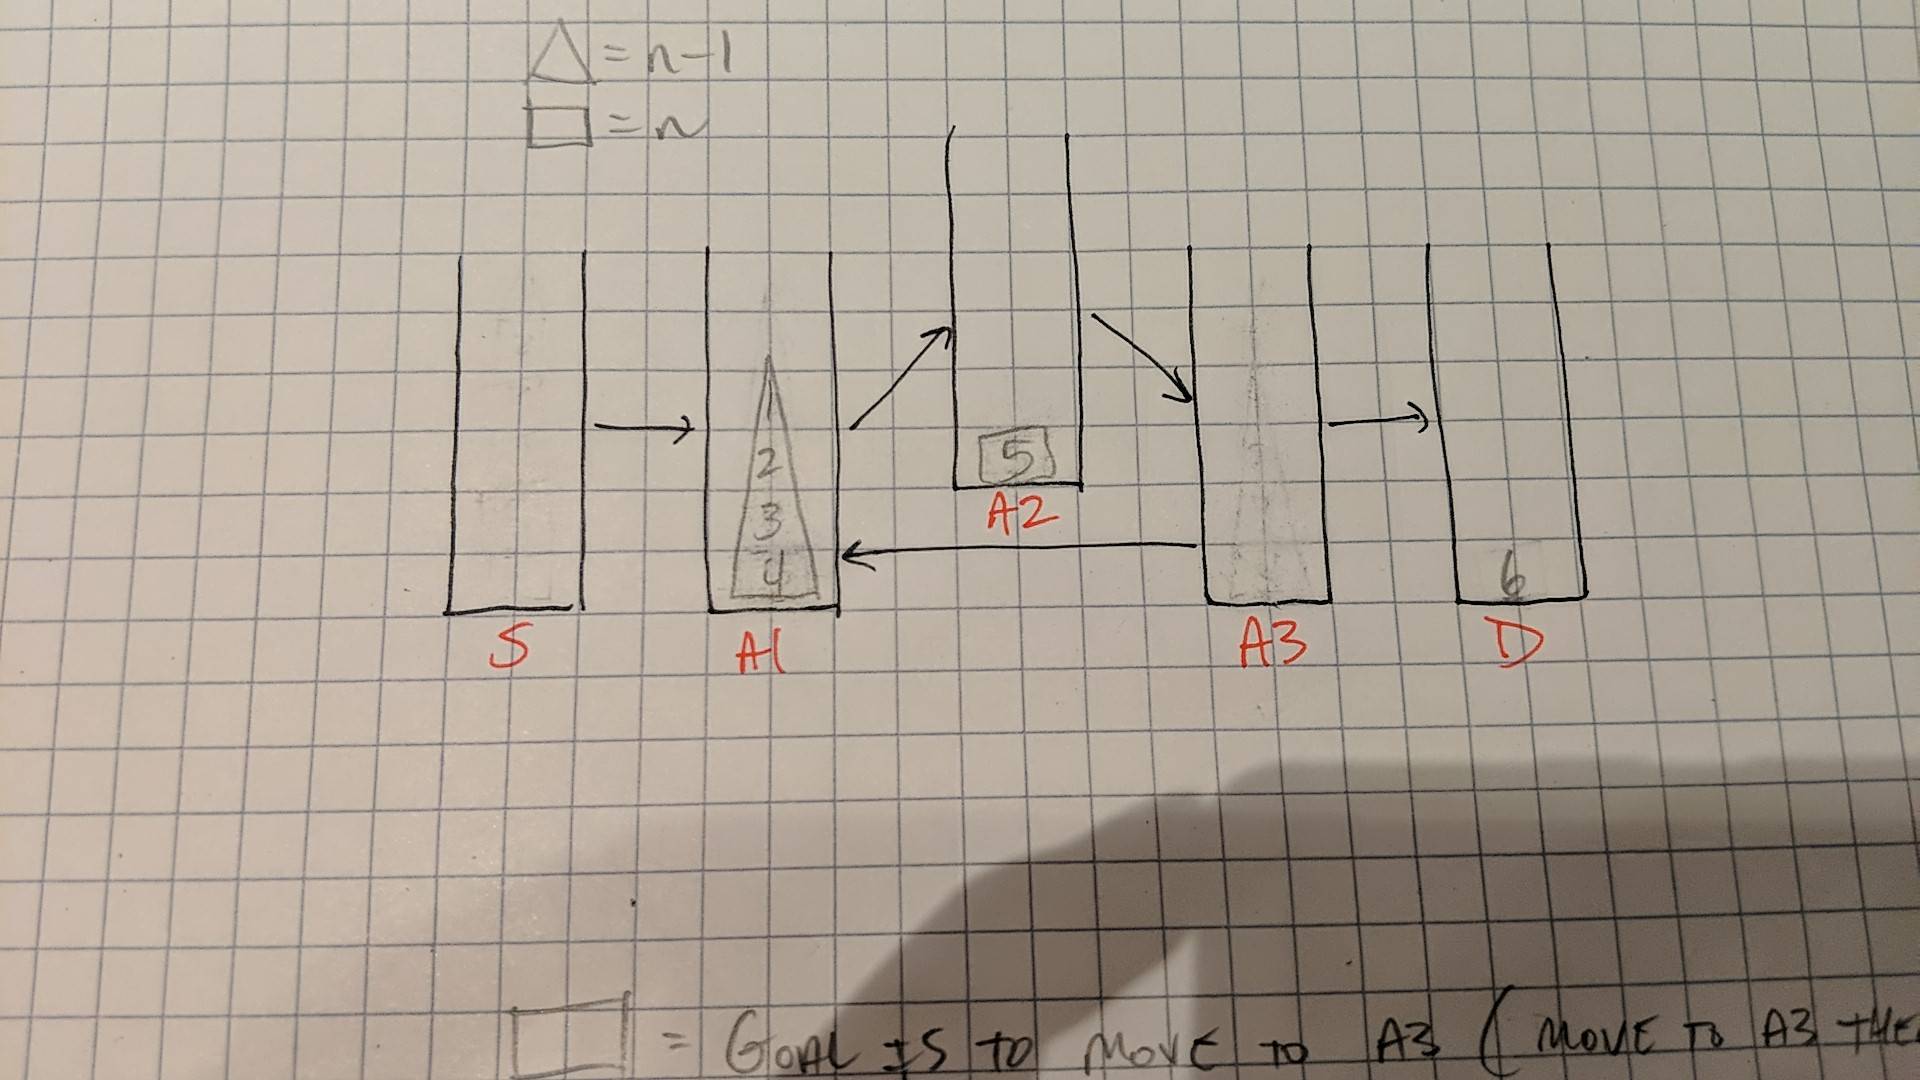 △ = n-1
□ = n
1
2
3
4
5
6
S A1 A2 A3 D
□ = GOAL IS TO MOVE TO A3 ( MOVE TO A3 THE